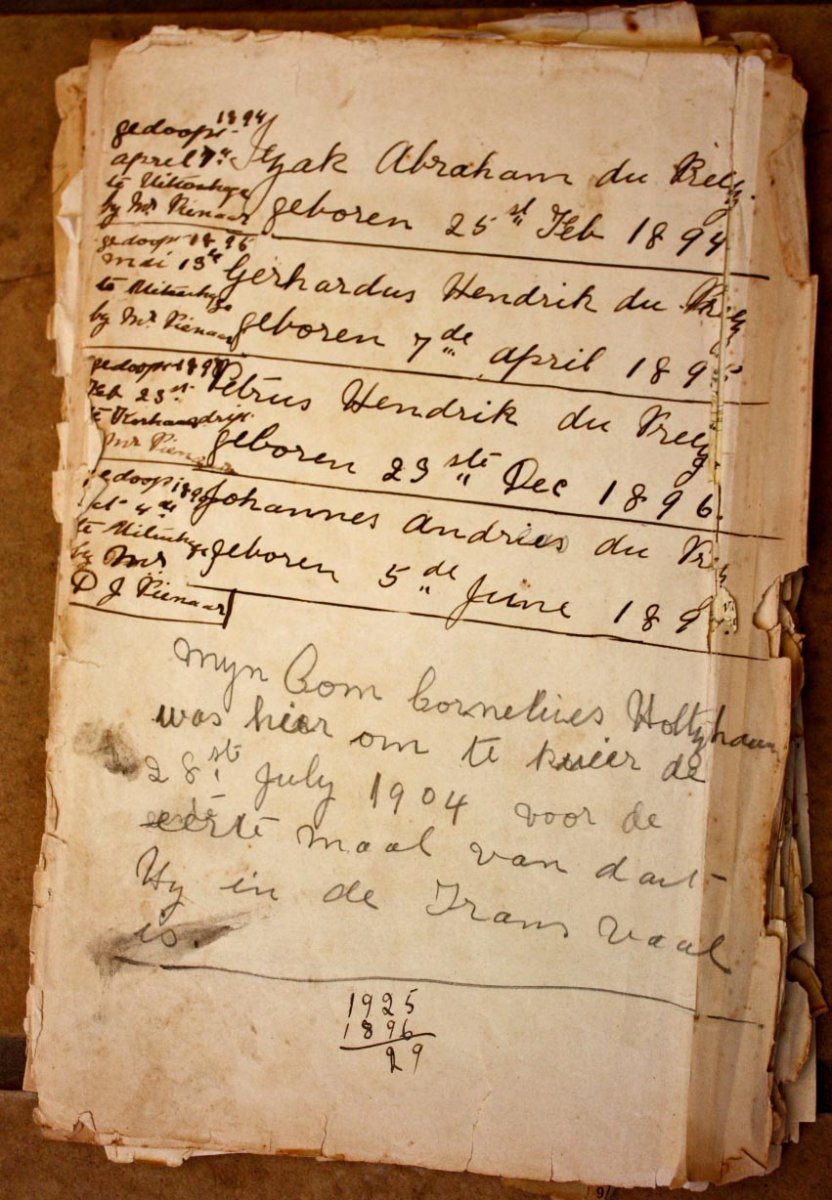 gedoopt 1894
april 7de
te Uitenhage
by Mr Pienaar
Izak Abraham du Preez.
geboren 25st Feb 1894
gedoopt 1895
mei 13de
te Uitenhage
by Mr Pienaar
Gerhardus Hendrik du Preez
geboren 7de april 189
gedoopt 1897
Feb 23st
te
Mr Pienaar
Petrus Hendrik du Preez
geboren 23ste Dec 1896.
gedoopt
4de
te Uitenhage
by Mr
D J Pienaar
Johannes Andries du
geboren 5de June 189
Myn Oom Cornelius Holtzhausen
was hier om te kuier de
28st July 1904 voor de
eerste maal van dart
Hy in de Trans Vaal
is.
1925
1896
29